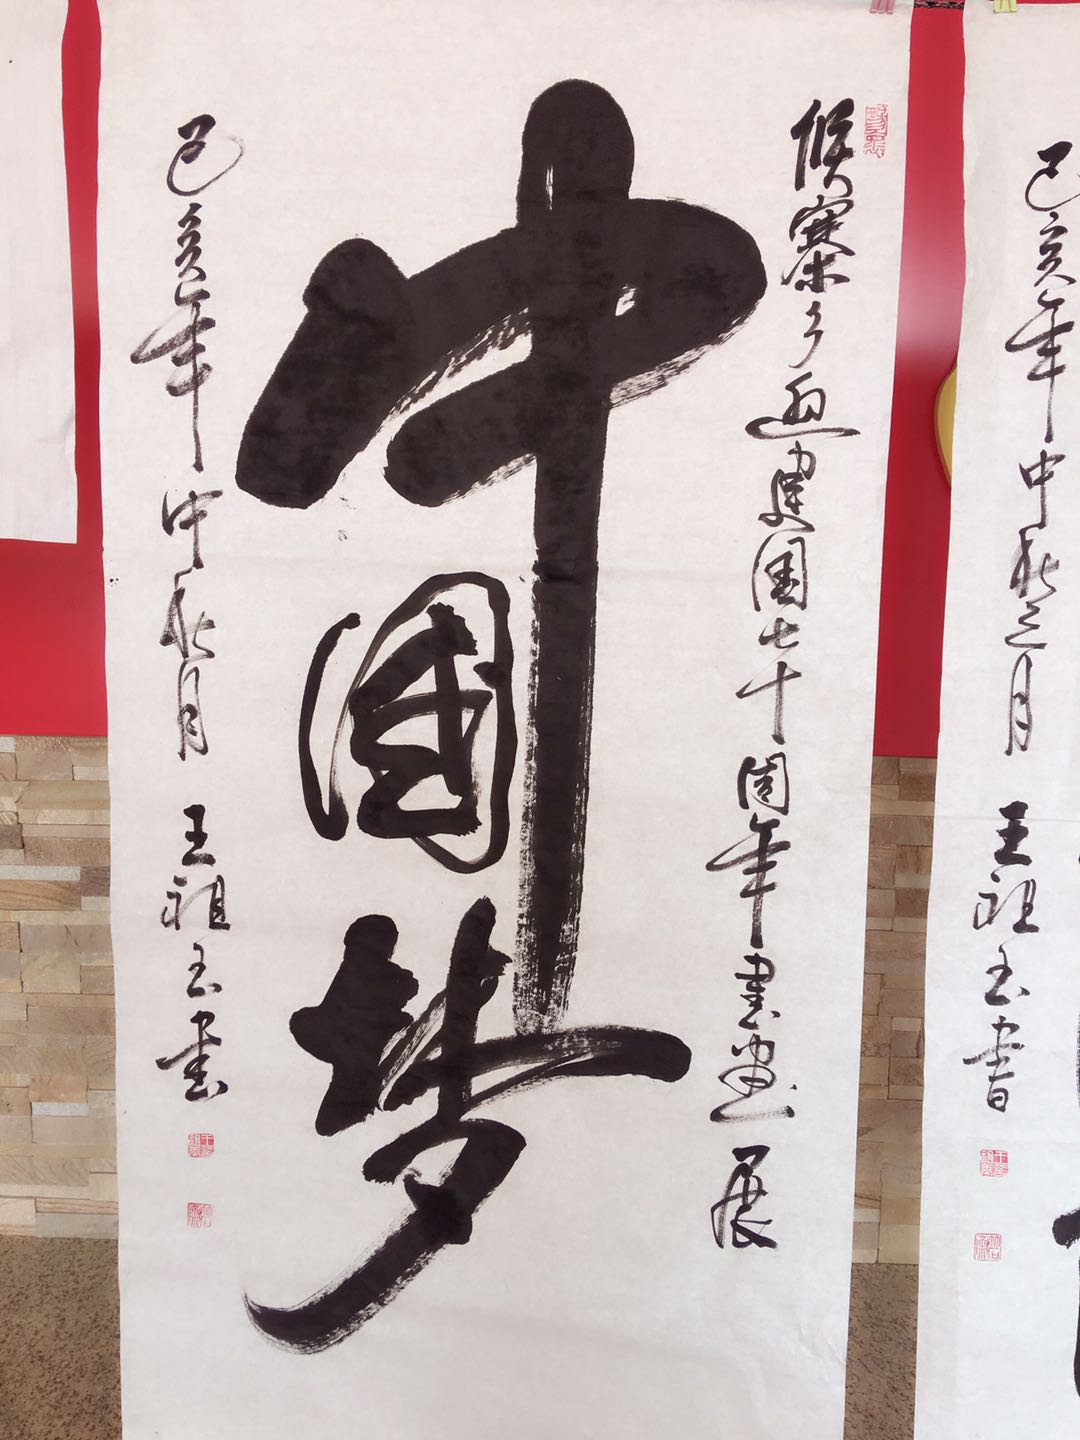 侯寨乡迎建国七十周年书画展
中国梦
己亥年中秋月 王祖玉书
己亥年中秋之月 王祖玉书